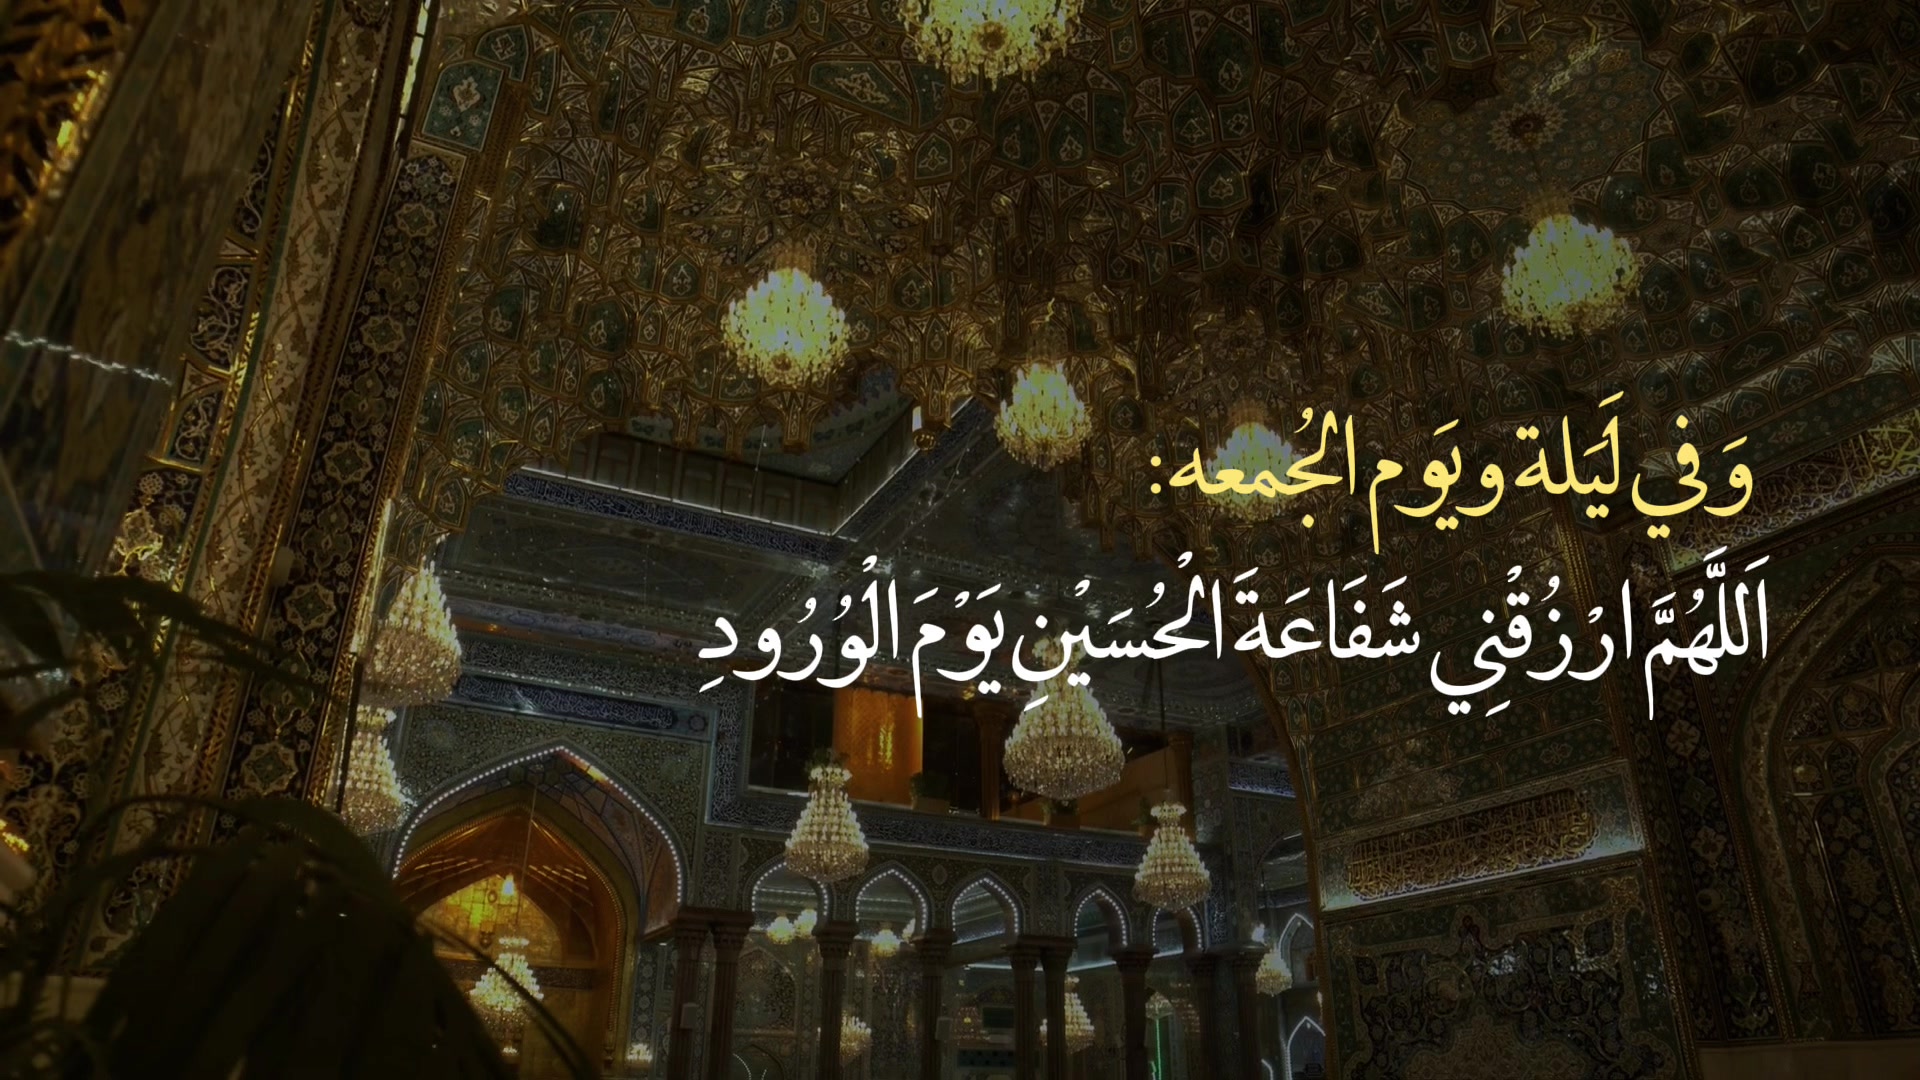 وَفي لَيَلة ويَوم الجُمعه:
اَللَّهُمَّ ارْزُقْنِي شَفَاعَةَ الْحُسَيْنِ يَوْمَ الْوُرُودِ